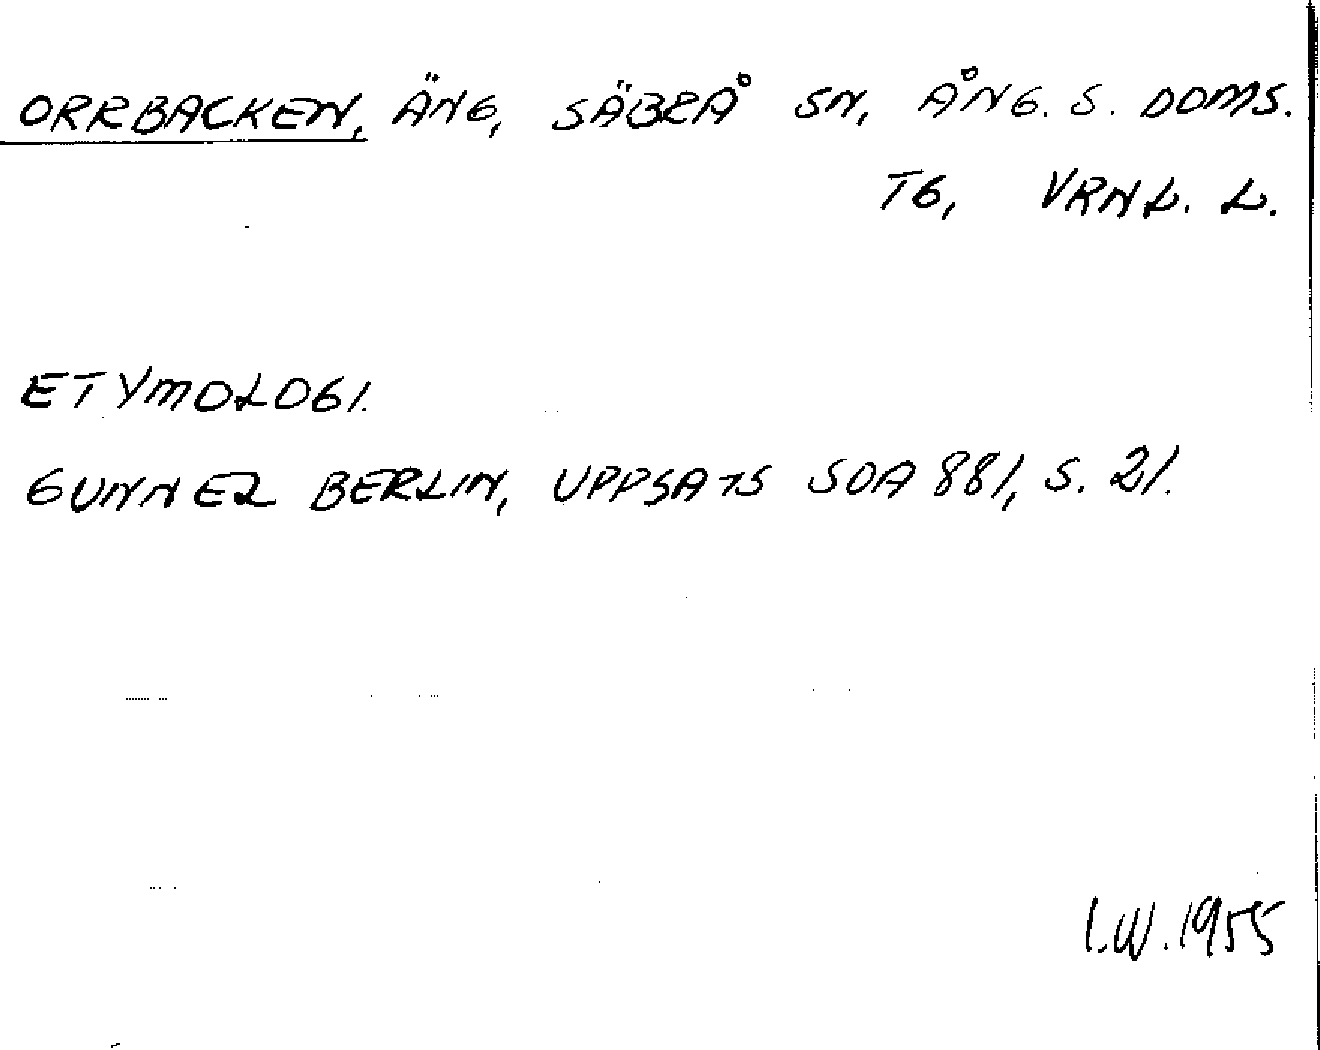 ORRBACKEN, ÄNG, SÄBRÅ SN, ÅNG. S. DOMS.
TG, VRNL. L.
ETYMOLOGI.
GUNNEL BERLIN, UPPSATS SOA 881, S. 21.
I.W. 1955